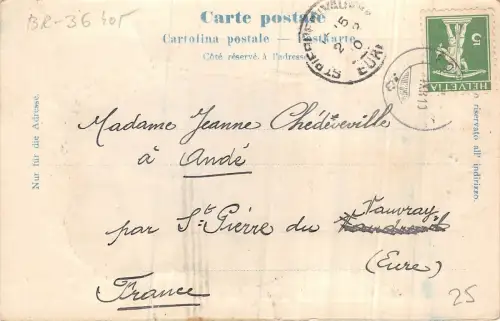 BR-36 40f
Carte postale
Cartolina postale — Postkarte
Côté réservé à l'adresse
Nur für die Adresse.
riservato all' indirizzo.
5
HELVETIA
EURE
Madame Jeanne Chédeville
à Andé
par St Pierre du Vauvray
(Eure)
France
25